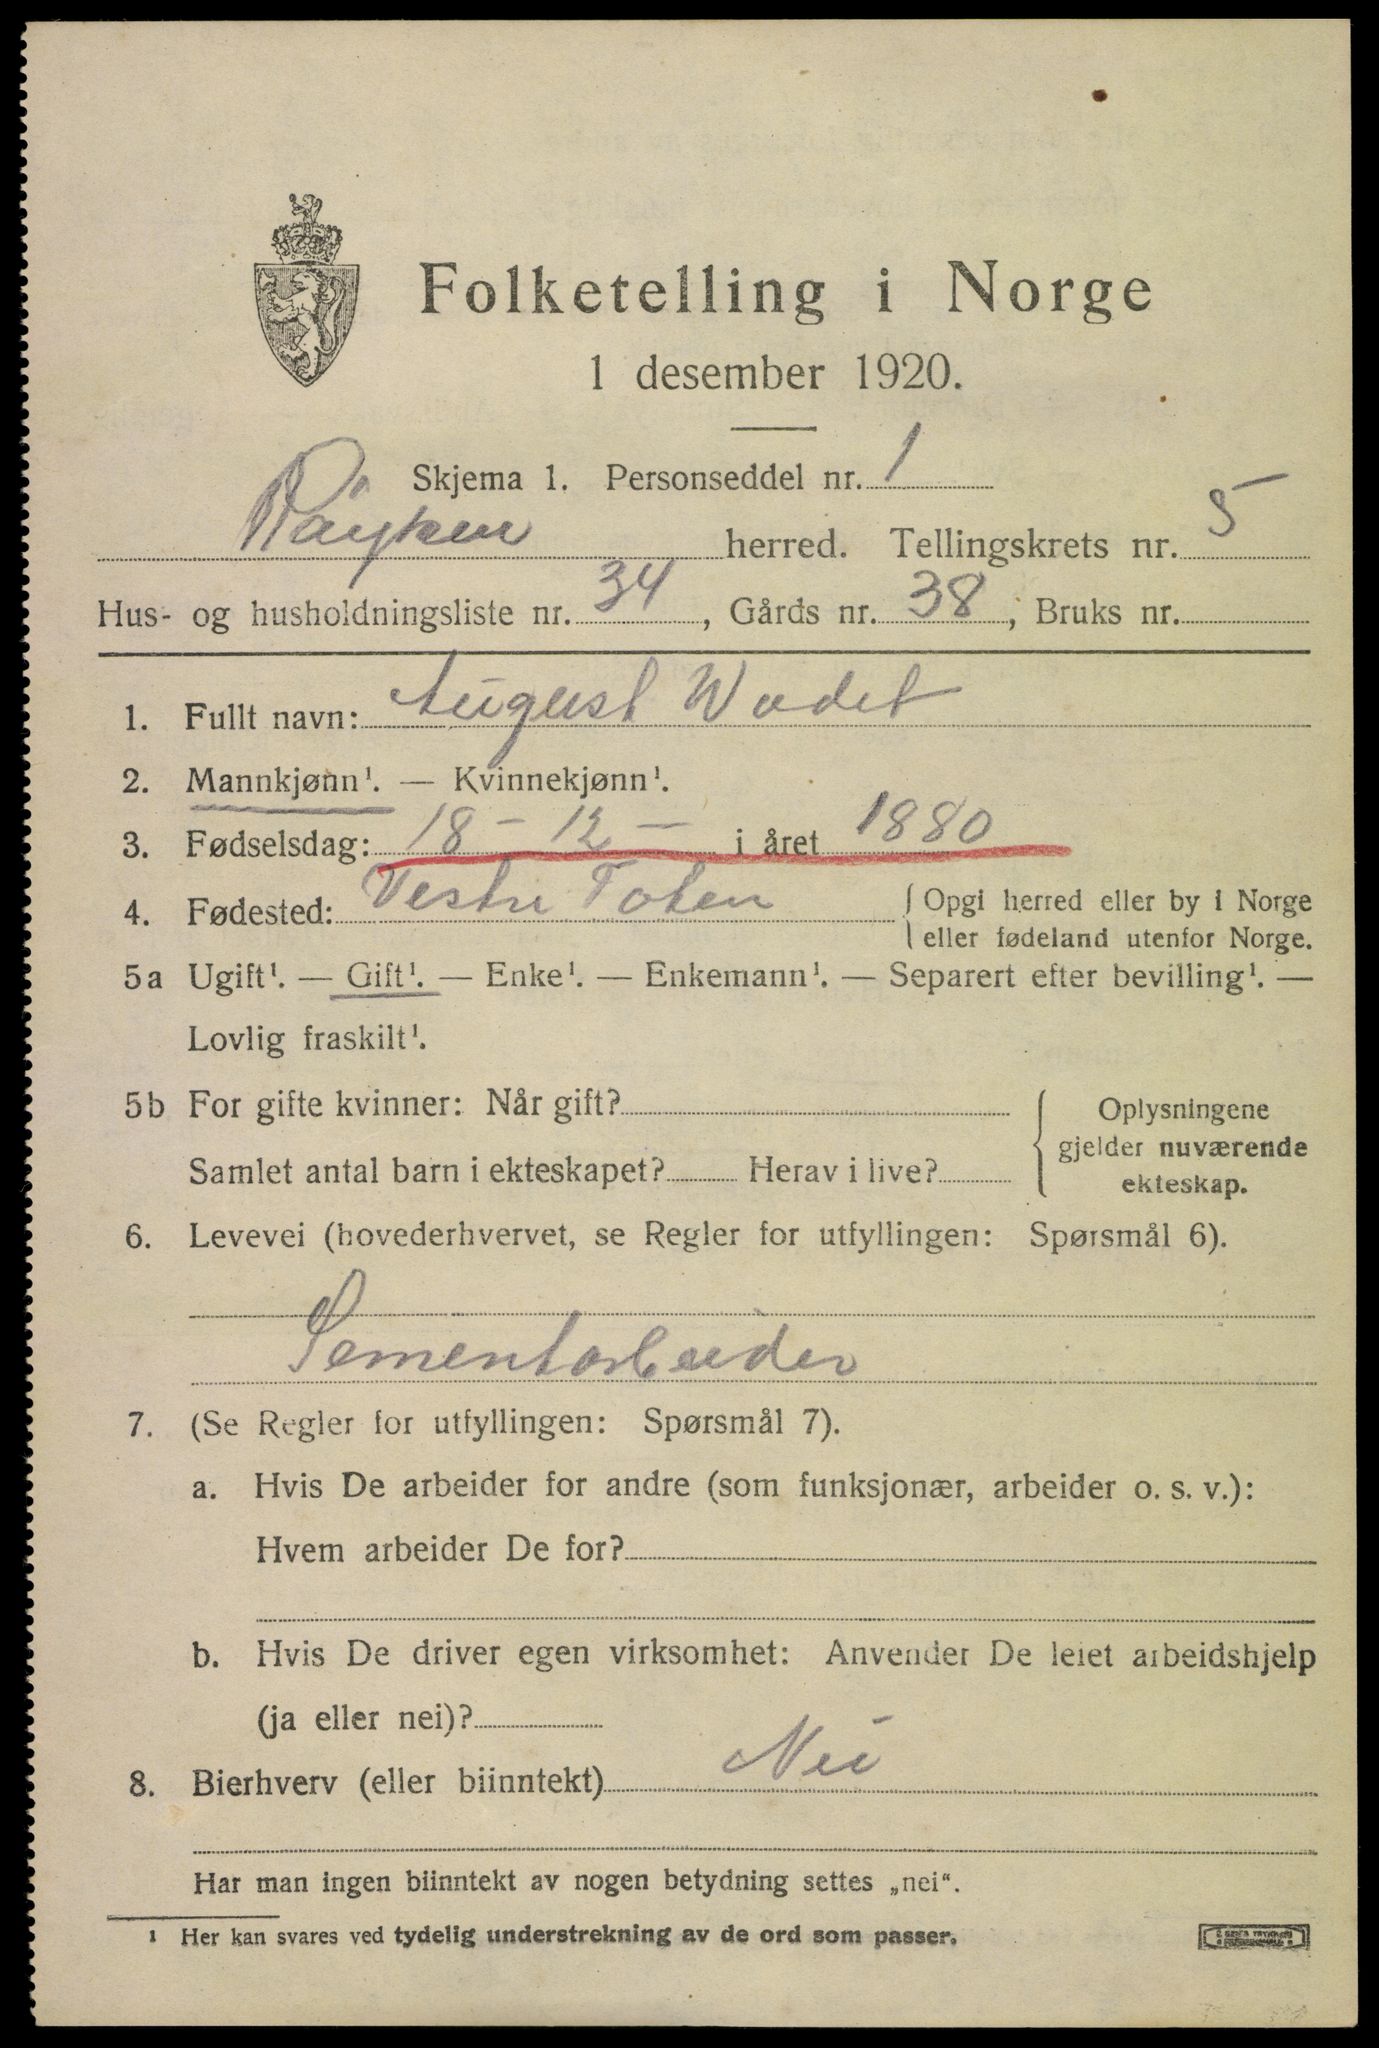 Folketelling i Norge
1 desember 1920.
Skjema 1. Personseddel nr. 1
Røyken herred. Tellingskrets nr. 5
Hus- og husholdningsliste nr. 34, Gårds nr. 38, Bruks nr.
1. Fullt navn: August Wadet
2. Mannkjønn¹. — Kvinnekjønn¹.
3. Fødselsdag: 18 - 12 - i året 1880
4. Fødested: Vestre Toten { Opgi herred eller by i Norge
eller fødeland utenfor Norge.
5a Ugift¹. — Gift¹. — Enke¹. — Enkemann¹. — Separert efter bevilling¹. —
Lovlig fraskilt¹.
5b For gifte kvinner: Når gift?
Samlet antal barn i ekteskapet? Herav i live?
Oplysningene
gjelder nuværende
ekteskap.
6. Levevei (hovederhvervet, se Regler for utfyllingen: Spørsmål 6).
Sementarbeider
7. (Se Regler for utfyllingen: Spørsmål 7).
a. Hvis De arbeider for andre (som funksjonær, arbeider o. s. v.):
Hvem arbeider De for?
b. Hvis De driver egen virksomhet: Anvender De leiet arbeidshjelp
(ja eller nei)?
8. Bierhverv (eller biinntekt) Nei
Har man ingen biinntekt av nogen betydning settes „nei“.
¹ Her kan svares ved tydelig understrekning av de ord som passer.